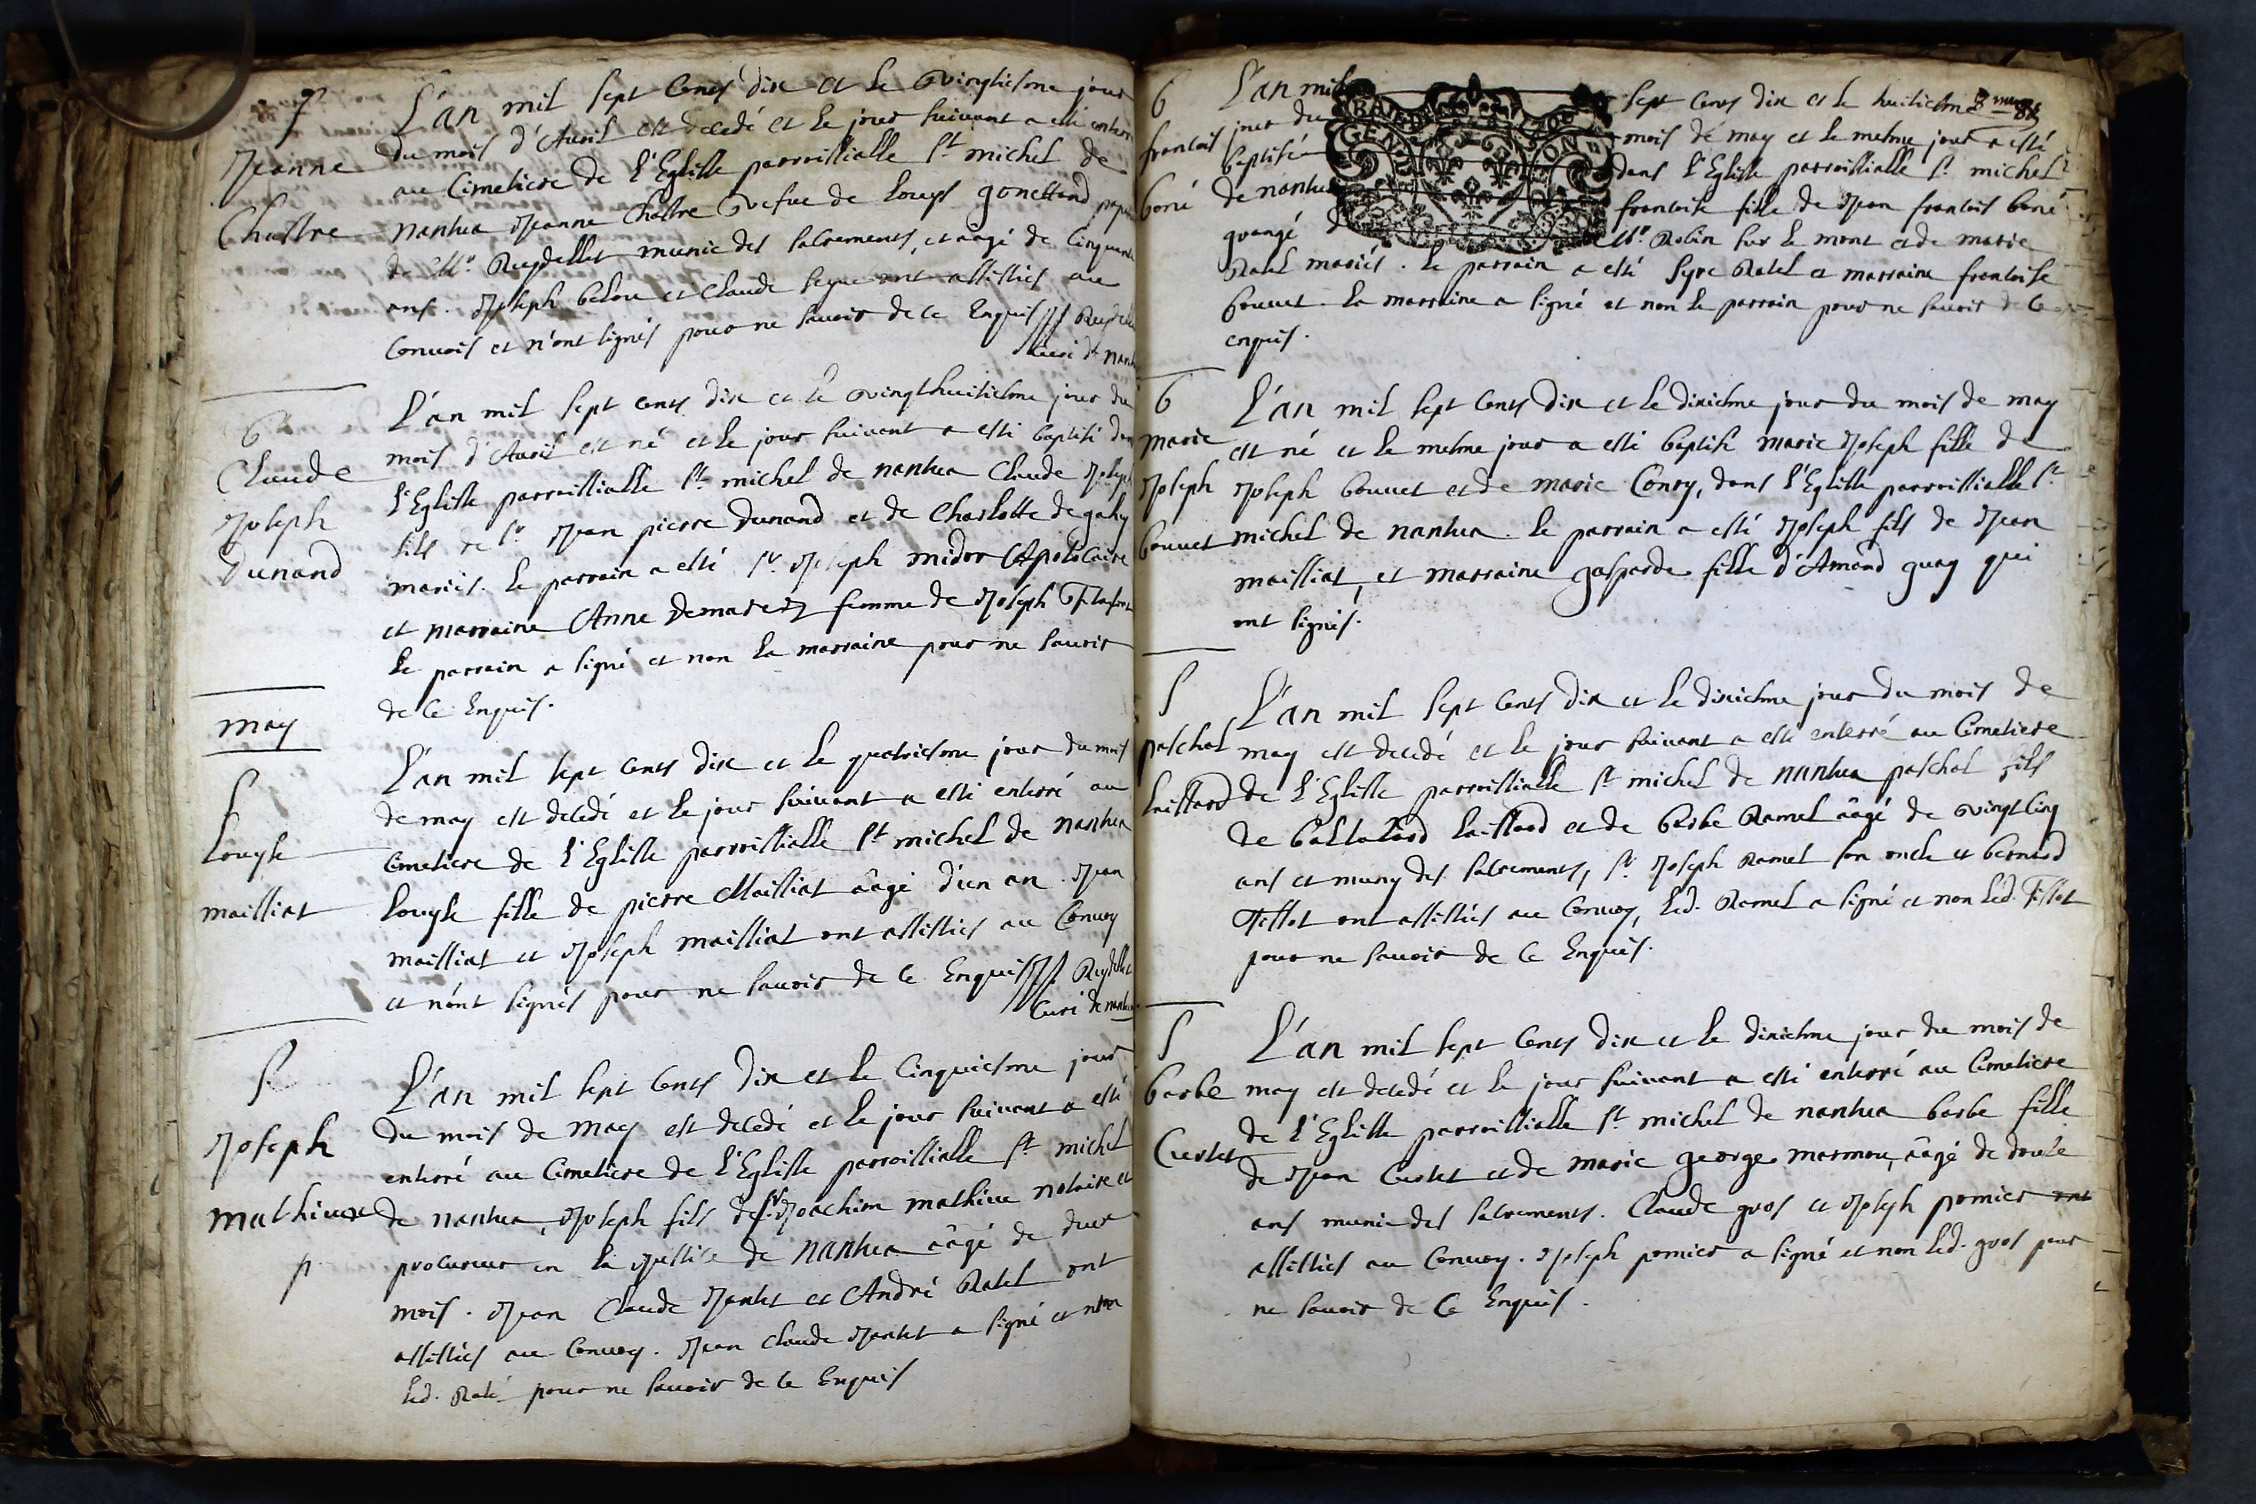 S
Jeanne
Chastre
L'an mil sept cents dix et le vingtiesme jour
du mois d'Avril est decedé et le jour suivant a esté enterré
au Cimetiere de l'Eglisse parroissialle St michel de
nantua Jeanne Chastre vefue de Louys gonettand
de Mr. Reydellet munie des sacrements, et aagé de Cinquante
ans. Joseph belou et Claude seque ont assistés au
Convois et n'ont signés pour ne sauoir de ce Enquis Reydellet
Curé de nantua
b
Claude
Joseph
Dunand
L'an mil sept cents dix et le vingthuitiesme jour du
mois d'Auril est né et le jour suiuant a esté baptisé dans
l'Eglisse parroissialle St michel de nantua Claude Joseph
fils de Sr Jean pierre Dunand et de Charlotte de gahy
mariés. Le parrain a esté Sr Joseph midor Apoticaire
et marraine Anne Demarest femme de Joseph
Le parrain a signé et non la marraine pour ne sauoir
de ce Enquis.
may
S
Louyse
mailliat
L'an mil sept cents dix et le quatriesme jour du mois
de may est decedé et le jour suiuant a esté enterré au
Cimetiere de l'Eglisse parroissialle St michel de nantua
Louyse fille de pierre Mailliat âagé d'un an. Jean
mailliat et Joseph mailliat ont assistés au Conuoy
et n'ont signés pour ne sauoir de ce Enquis Reydellet
Curé de nantua
S
Joseph
mathieu
p
L'an mil sept cents dix et le Cinquiesme jour
du mois de may est decedé et le jour suiuant a esté
enterré au Cimetiere de l'Eglisse parroissialle St michel
de nantua Joseph fils de Sr Joachim mathieu notaire et
procureur en la Justice de nantua aâgé de deux
mois. Jean Claude Jantet et André Ratel ont
assistés au Conuoy. Jean claude Jantet a signé et non
led. Raté pour ne sauoir de ce Enquis
b
francois
boné
L'an mil sept cents dix et le huitiesme
jour du mois de may et le mesme jour a esté
baptisé dans l'Eglisse parroissialle St michel
de nantua francoise fille de Jean francois boné
grangé de Mr. Robin sur le mont et de marie
Ratel mariés. Le parrain a esté Syre Ratel et marraine francoise
bouuet. La marraine a signé et non le parrain pour ne sauoir de ce
enquis.
GEN
b
marie
Joseph
bouuet
L'an mil sept cents dix et le dixiesme jour du mois de may
est né et le mesme jour a esté baptisé marie Joseph fille de
Joseph bouuet et de marie Conry, dans l'Eglisse parroissialle St
michel de nantua. Le parrain a esté Joseph fils de Jean
mailliat, et marraine gasparde fille d'Amand guay qui
ont signés.
S
paschal
laissard
L'an mil sept cents dix et le dixiesme jour du mois de
may est decedé et le jour suiuant a esté enterré au Cimetiere
de l'Eglisse parroissialle St michel de nantua paschal fils
de baltasard laissard et de barbe Ramel âagé de vingt cinq
ans et muny des sacrements, Sr Joseph Ramel son oncle et bernard
Tissot ont assistés au Conuoy, led. Ramel a signé et non led. Tissot
pour ne sauoir de ce Enquis.
S
barbe
Curtet
L'an mil sept cents dix et le dixiesme jour du mois de
may est decedé et le jour suiuant a esté enterré au Cimetiere
de l'Eglisse parroissialle St michel de nantua barbe fille
de Jean Curtet et de marie george marmou, aâgé de douze
ans munie des sacrements. Claude gros et Joseph pomier ont
assistés au Conuoy. Joseph pomier a signé et non led. gros pour
ne sauoir de ce Enquis.